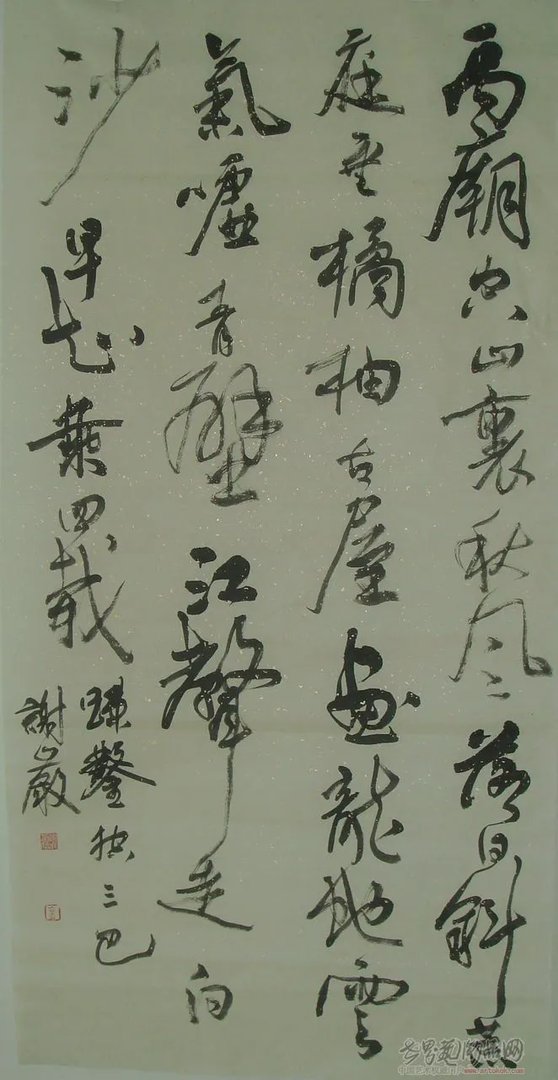 禹廟空山裏秋風落日斜荒
庭垂橘柚古屋畫龍虵雲
氣噓青壁江聲走白
沙早知乘四載
疎鑿控三巴
謝巖